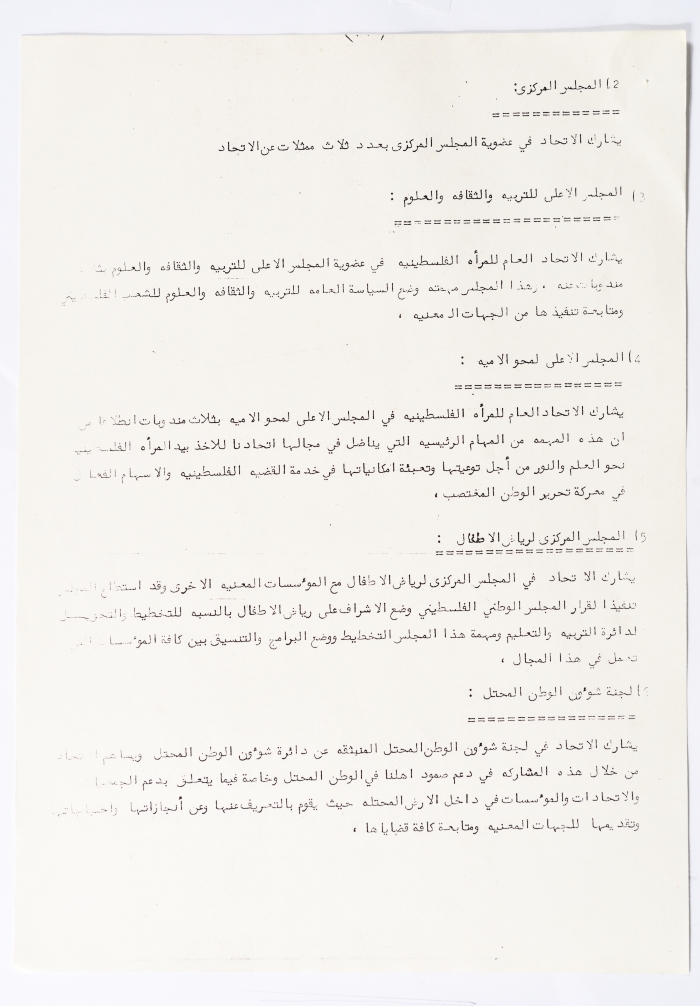 2) المجلس المركزى:
=============
يشارك الاتحاد في عضوية المجلس المركزى بعدد ثلاث ممثلات عن الاتحاد
3) المجلس الاعلى للتربيه والثقافه والعلوم :
=======================
يشارك الاتحاد العام للمرأه الفلسطينيه في عضوية المجلس الاعلى للتربيه والثقافه والعلوم
مندوبات عنه ، وهذا المجلس مهمته وضع السياسة العامه للتربيه والثقافه والعلوم للشعب الفلسطيني
ومتابعة تنفيذها من الجهات المعنيه ،
4) المجلس الاعلى لمحو الاميه :
=================
يشارك الاتحاد العام للمرأه الفلسطينيه في المجلس الاعلى لمحو الاميه بثلاث مندوبات انطلاقا من
ان هذه المهمه من المهام الرئيسيه التي يناضل في مجالها اتحادنا للاخذ بيد المرأه الفلسطينيه
نحو العلم والنور من أجل توعيتها وتعبئة امكانياتها في خدمة القضيه الفلسطينيه والاسهام الفعال
في معركة تحرير الوطن المغتصب ،
5) المجلس المركزى لرياض الاطفال :
====================
يشارك الاتحاد في المجلس المركزى لرياض الاطفال مع المؤسسات المعنيه الاخرى وقد استطاع المجلس
تنفيذا لقرار المجلس الوطني الفلسطيني وضع الاشراف على رياض الاطفال بالنسبه للتخطيط والتمويل
لدائرة التربيه والتعليم ومهمة هذا المجلس التخطيط ووضع البرامج والتنسيق بين كافة المؤسسات التي
تعمل في هذا المجال ،
6) لجنة شوءون الوطن المحتل :
=================
يشارك الاتحاد في لجنة شوءون الوطن المحتل المنبثقه عن دائرة شوءون الوطن المحتل ويساهم الاتحاد
من خلال هذه المشاركه في دعم صمود اهلنا في الوطن المحتل وخاصة فيما يتعلق بدعم الجمعيات
والاتحادات والمؤسسات في داخل الارض المحتله حيث يقوم بالتعريف عنها وعن أنجازاتها واحتياجاتها
وتقديمها للجهات المعنيه ومتابعة كافة قضاياها ،